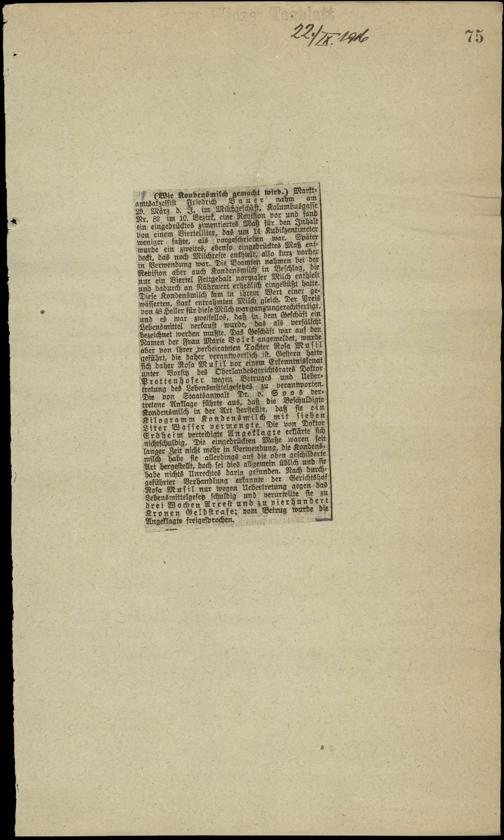 22./IX. 1916
75
(Wie Kondensmilch gemacht wird.) Markt-
amtsakzessist Friedrich Bauer nahm am
29. März d. J. im Milchgeschäft, Kolumbusgasse
Nr. 89 im 10. Bezirk, eine Revision vor und fand
ein eingedrücktes zimentiertes Maß für den Inhalt
von einem Viertelliter, das um 14 Kubikzentimeter
weniger faßte, als vorgeschrieben war. Später
wurde ein zweites, ebenso eingedrücktes Maß ent-
deckt, das noch Milchreste enthielt, also kurz vorher
in Verwendung war. Die Beamten nahmen bei der
Revision aber auch Kondensmilch in Beschlag, die
nur ein Viertel Fettgehalt normaler Milch enthielt
und dadurch an Nährwert erheblich eingebüßt hatte.
Diese Kondensmilch kam in ihrem Wert einer ge-
wässerten, stark entrahmten Milch gleich. Der Preis
von 48 Heller für diese Milch war ganz ungerechtfertigt,
und es war zweifellos, daß in dem Geschäft ein
Lebensmittel verkauft wurde, das als verfälscht
bezeichnet werden mußte. Das Geschäft war auf den
Namen der Frau Marie Volek angemeldet, wurde
aber von ihrer verheirateten Tochter Rosa Musil
geführt, die daher verantwortlich ist. Gestern hatte
sich daher Rosa Musil vor einem Erkenntnissenat
unter Vorsitz des Oberlandesgerichtsrates Doktor
Prettenhofer wegen Betruges und Ueber-
tretung des Lebensmittelgesetzes zu verantworten.
Die von Staatsanwalt Dr. v. Soos ver-
tretene Anklage führte aus, daß die Beschuldigte
Kondensmilch in der Art herstellte, daß sie ein
Kilogramm Kondensmilch mit sieben
Liter Wasser vermengte. Die von Doktor
Erdheim verteidigte Angeklagte erklärte sich
nichtschuldig. Die eingedrückten Maße waren seit
langer Zeit nicht mehr in Verwendung, die Kondens-
milch habe sie allerdings auf die oben geschilderte
Art hergestellt, doch sei dies allgemein üblich und sie
habe nichts Unrechtes darin gefunden. Nach durch-
geführter Verhandlung erkannte der Gerichtshof
Rosa Musil nur wegen Uebertretung gegen das
Lebensmittelgesetz schuldig und verurteilte sie zu
drei Wochen Arrest und zu vierhundert
Kronen Geldstrafe; vom Betrug wurde die
Angeklagte freigesprochen.